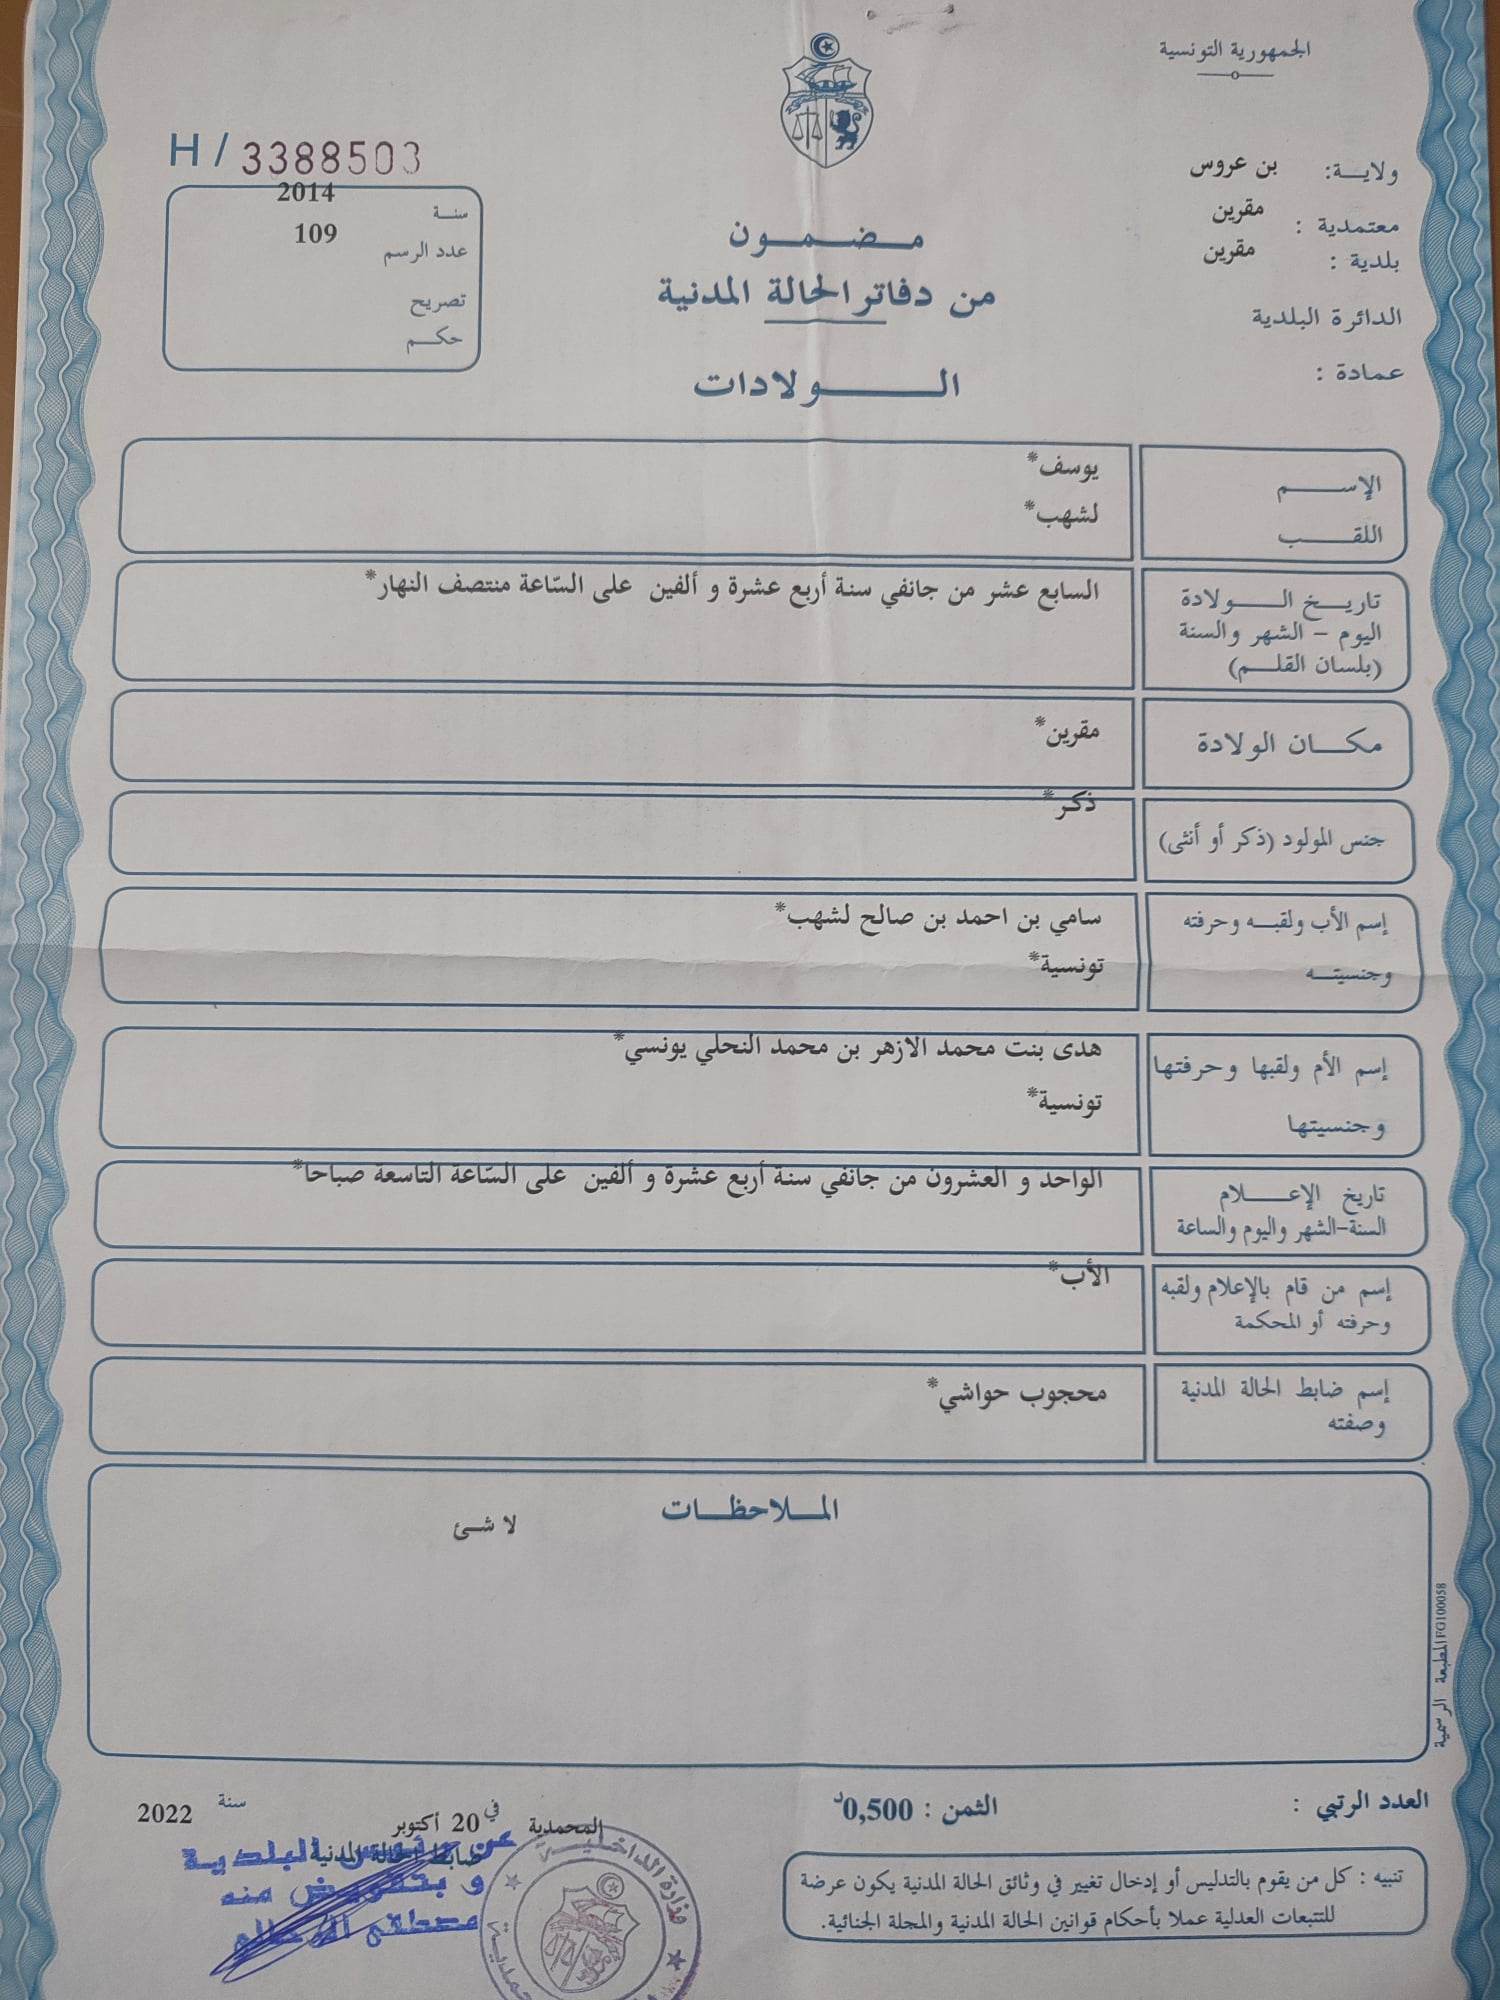 الجمهورية التونسية
ولايـة: بن عروس
معتمدية : مقرين
بلدية : مقرين
الدائرة البلدية
عمادة :
H / 3388503
سنـة 2014
عدد الرسم 109
تصريح
حكـم
مـضـمـون
من دفاتر الحالة المدنية
الـولادات
الإسـم يوسف*
اللقـب لشهب*
تاريـخ الـولادة السابع عشر من جانفي سنة أربع عشرة و ألفين على السّاعة منتصف النهار*
اليوم - الشهر والسنة
(بلسان القلـم)
مكـان الولادة مقرين*
جنس المولود (ذكر أو أنثى) ذكر*
إسم الأب ولقبـه وحرفته سامي بن احمد بن صالح لشهب*
وجنسيتـه تونسية*
إسم الأم ولقبها وحرفتها هدى بنت محمد الازهر بن محمد النحلي يونسي*
وجنسيتها تونسية*
تاريخ الإعـلام الواحد و العشرون من جانفي سنة أربع عشرة و ألفين على السّاعة التاسعة صباحا*
السنة-الشهر واليوم والساعة
إسم من قام بالإعلام ولقبه الأب*
وحرفته أو المحكمة
إسم ضابط الحالة المدنية محجوب حواشي*
وصفته
المـلاحظـات
لا شئ
المطبعة الرسمية FG100058
العدد الرتبي :
الثمن : 0,500د
المحمدية في 20 أكتوبر سنة 2022
ضابط الحالة المدنية
عن رئيس البلدية
و بتفويض منه
مصطفى
وزارة الداخلية
تنبيه : كل من يقوم بالتدليس أو إدخال تغيير في وثائق الحالة المدنية يكون عرضة
للتتبعات العدلية عملا بأحكام قوانين الحالة المدنية والمجلة الجنائية.